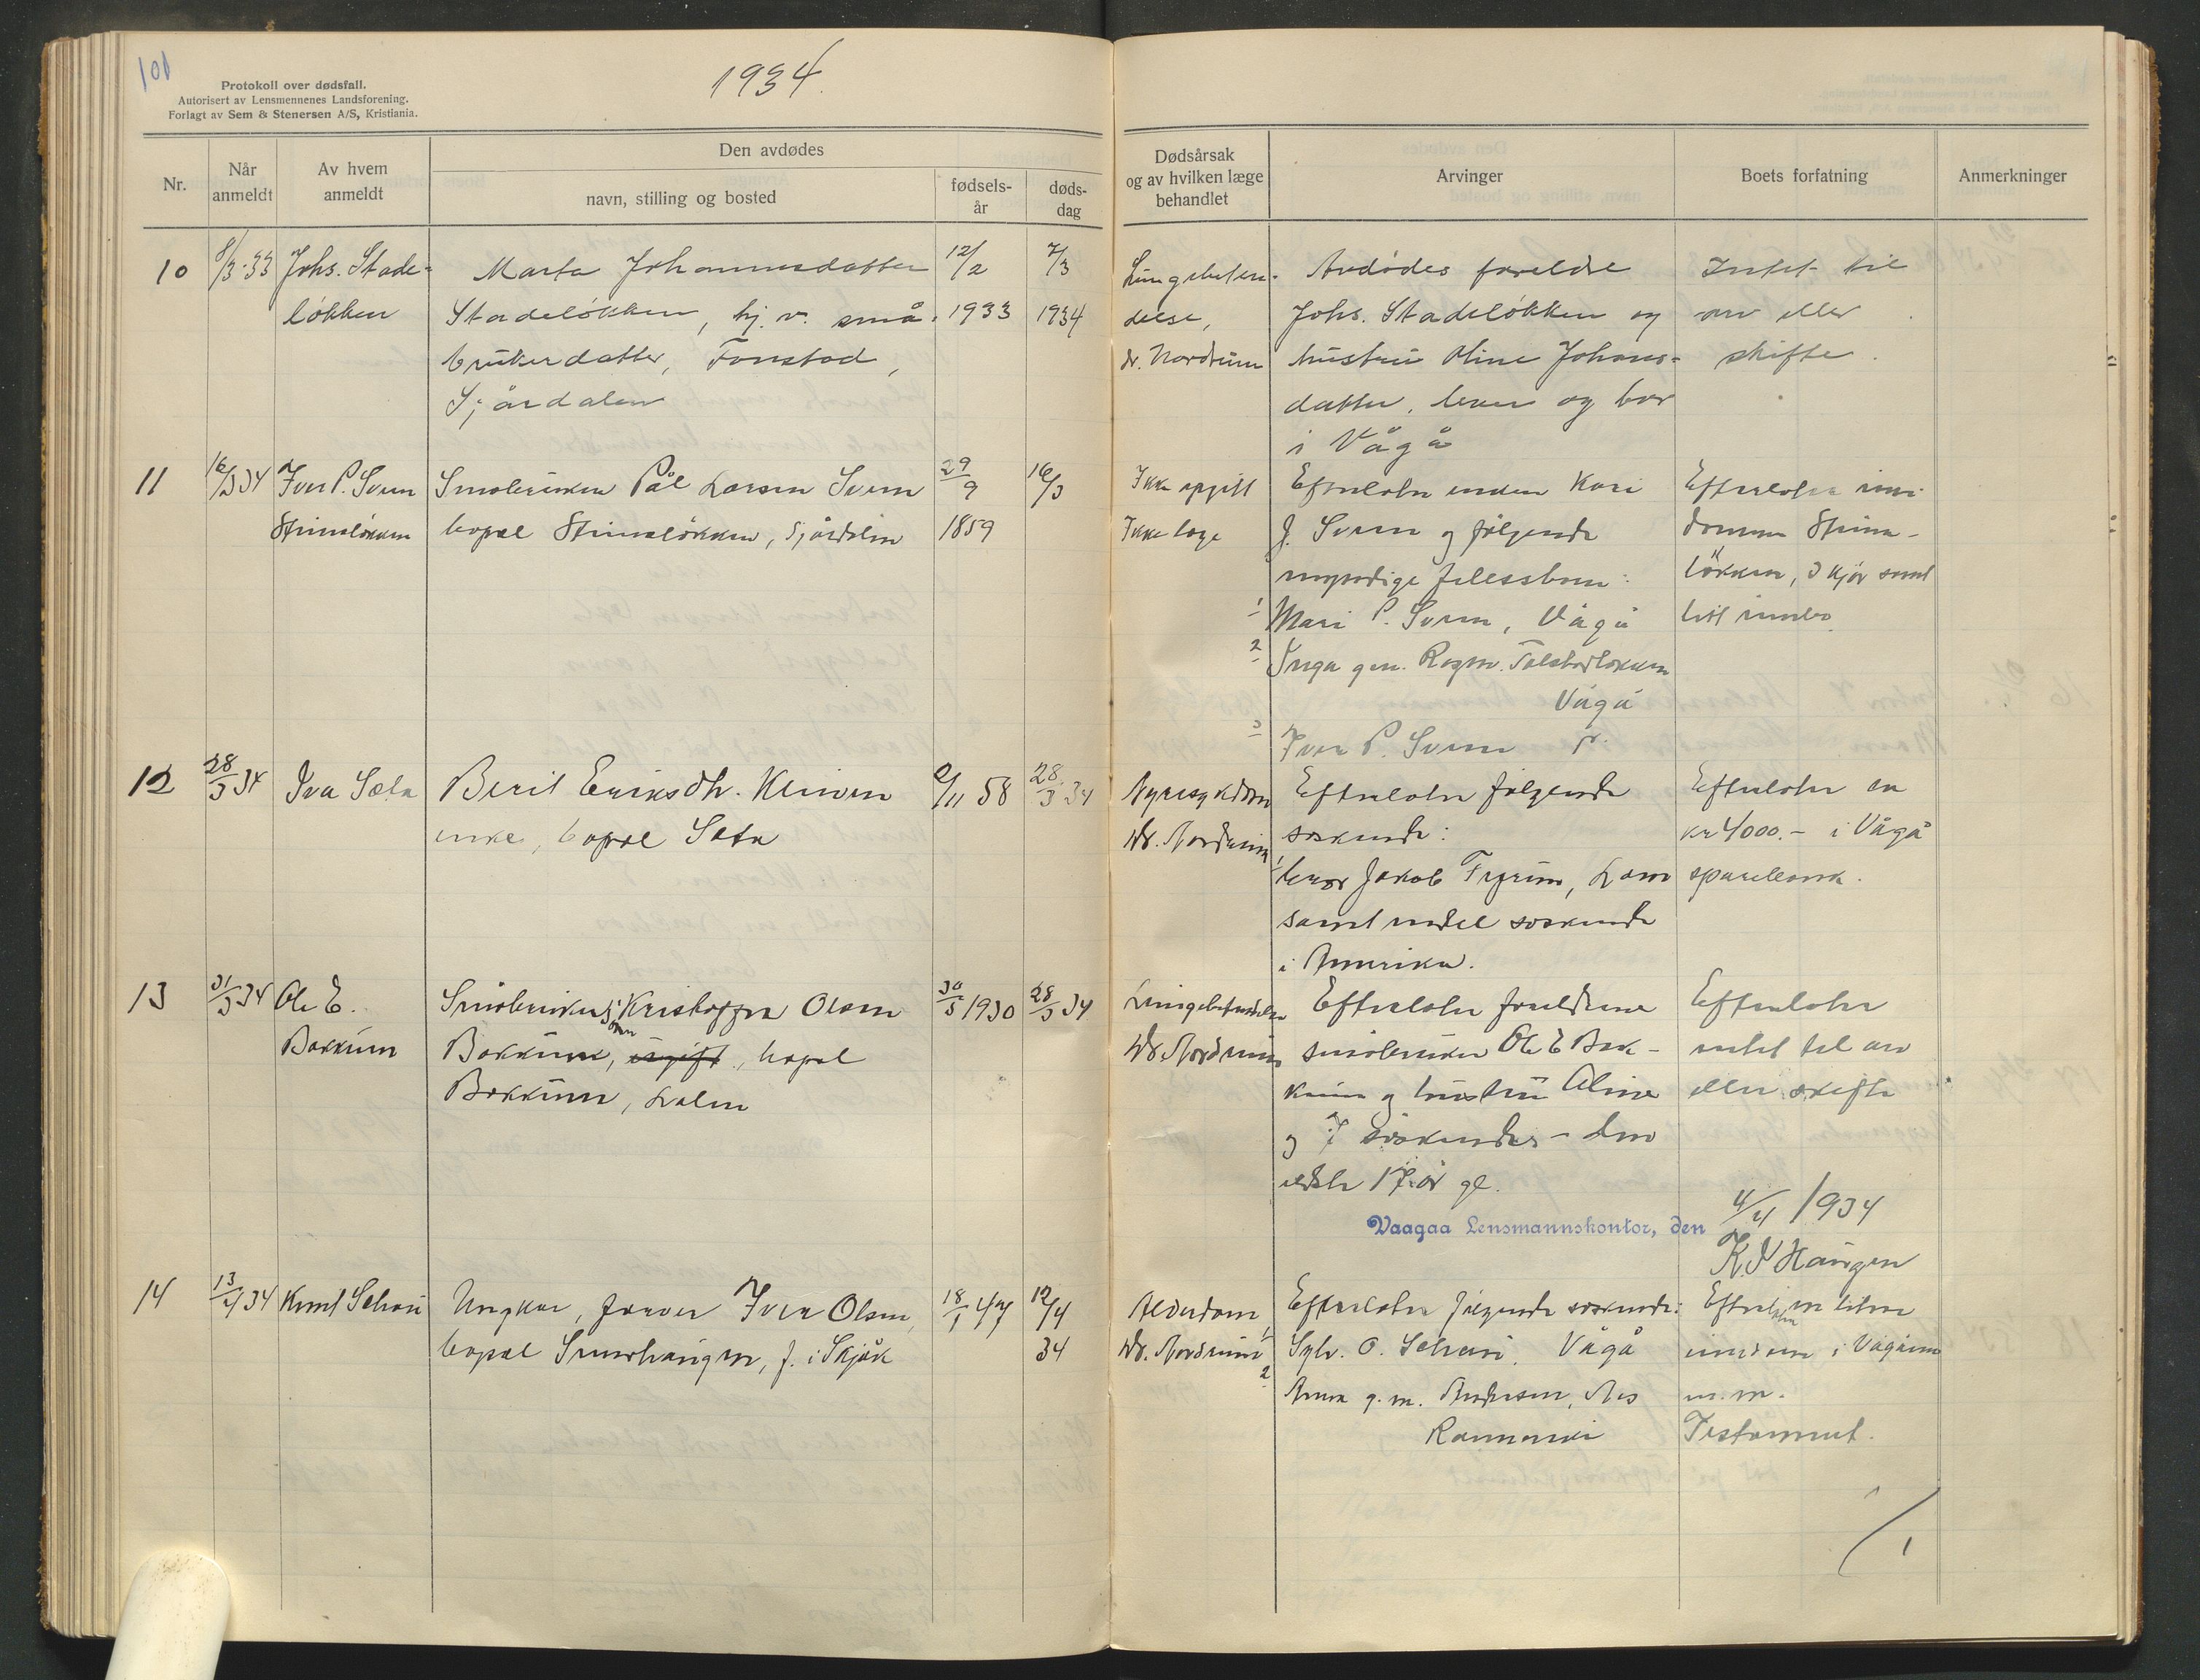 101
Protokoll over dødsfall.
Autorisert av Lensmennenes Landsforening.
Forlagt av Sem & Stenersen A/S, Kristiania.
1934.
Nr.
Når anmeldt
Av hvem anmeldt
Den avdødes
navn, stilling og bosted
fødsels-år
døds-dag
Dødsårsak og av hvilken læge behandlet
Arvinger
Boets forfatning
Anmerkninger
10
8/3-33
Johs. Stade-
løkken
Marta Johannesdatter
Stadeløkken, hj. v. små-
brukerdatter, Tonstad,
Sjårdalen
12/2
1933
7/3
1934
Lungebeten-
delse,
dr. Nordrum
Avdødes foreldre
Johs. Stadeløkken og
hustru Oline Johans-
datter, lever og bor
i Vågå
Intet til
arv eller
skifte.
11
16/3 34
Iver P. Sveen
Steinsløkken
Småbruker Pål Larsen Sveen
bopæl Steinsløkken, Sjårdalen
29/9
1859
16/3
Ikke opgitt
Ikke læge
Efterlater enken Kari
J. Sveen og følgende
myndige fellesbarn:
1 Mari P. Sveen, Vågå
2 Inga gm. Rasm. Tolstadløkken
Vågå
3 Iver P. Sveen
Efterlater eien-
dommen Steins-
løkken, 3 kjør samt
litt innbo
12
28/3 34
Iva Sæta
Berit Eriksdtr. Kleiven
enke, bopæl Sæta
2/11 58
28/3 34
Nyresykdom
Dr. Nordrum
Efterlater følgende
søskende:
1 bror Jakob Fryrum, Lom
samt endel søskende
i Amerika.
Efterlater ca
kr 4000.- i Vågå
sparebank.
13
31/3 34
Ole E.
Bakkum
Småbruker
sønn
Kristoffer Olsen
Bakkum, ugift, bopæl
Bakkum, Lalm
30/5 1930
28/3 34
Lungebetendelse
Dr. Nordrum
Efterlater foreldrene
småbruker Ole E Bak-
kum og hustru Oline
og 7 søskender - den
eldste 17 år gl.
Efterlater
intet til arv
eller skifte
Vaagaa Lensmannskontor, den 4/4 1934
K. Haugen
14
13/4 34
Knut Selsvi
Ungkar, farver Iver Olsen,
bopæl Smedhaugen, f. i Skjåk
18/1 47
12/4
34
Alderdom
Dr. Nordrum
Efterlater følgende søskende:
1 Sylv. O. Selsvi, Vågå
2 Anna g. m. Andersen, Nes
Romerike
Efterlater en liten
eiendom i Vågåmo
m.m.
Testament.